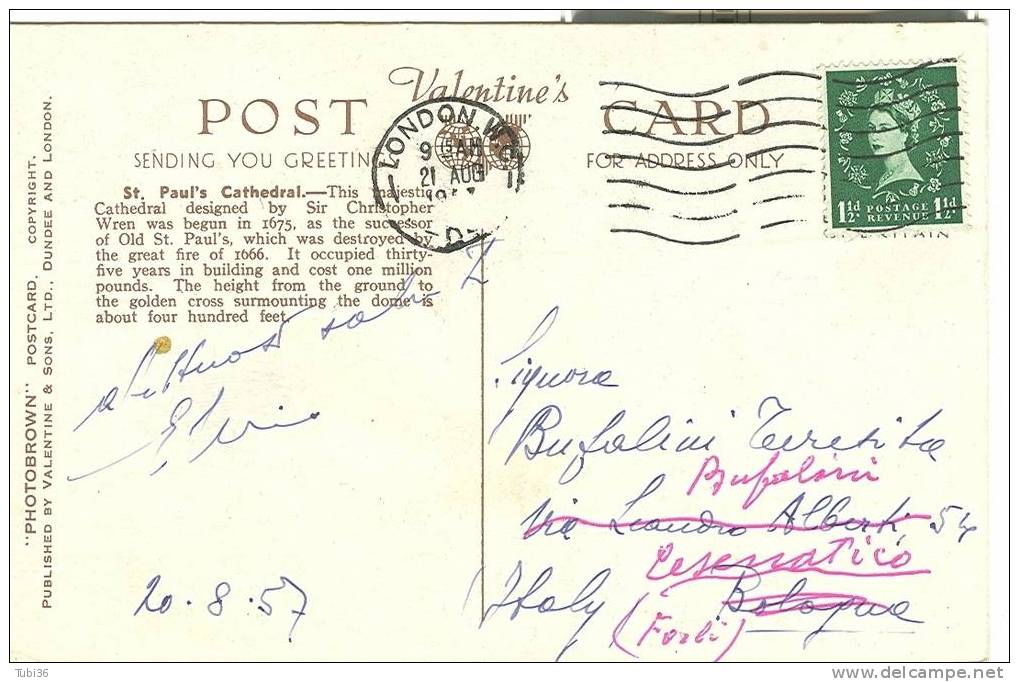 Valentine's
POST CARD
SENDING YOU GREETIN
FOR ADDRESS ONLY
St. Paul's Cathedral.—This majestic
Cathedral designed by Sir Christopher
Wren was begun in 1675, as the successor
of Old St. Paul's, which was destroyed by
the great fire of 1666. It occupied thirty-
five years in building and cost one million
pounds. The height from the ground to
the golden cross surmounting the dome is
about four hundred feet.
"PHOTOBROWN" POSTCARD. COPYRIGHT.
PUBLISHED BY VALENTINE & SONS, LTD., DUNDEE AND LONDON.
LONDON W
9 AM
21 AUG
1½d POSTAGE REVENUE 1½d
affettuosi saluti
20.8.57
Signora
Bufalini Teresita
Bufalini
Via Leandro Alberti, 54
Cesenatico
Italy Bologna
(Forlì)
Tubi36
www.delcampe.net